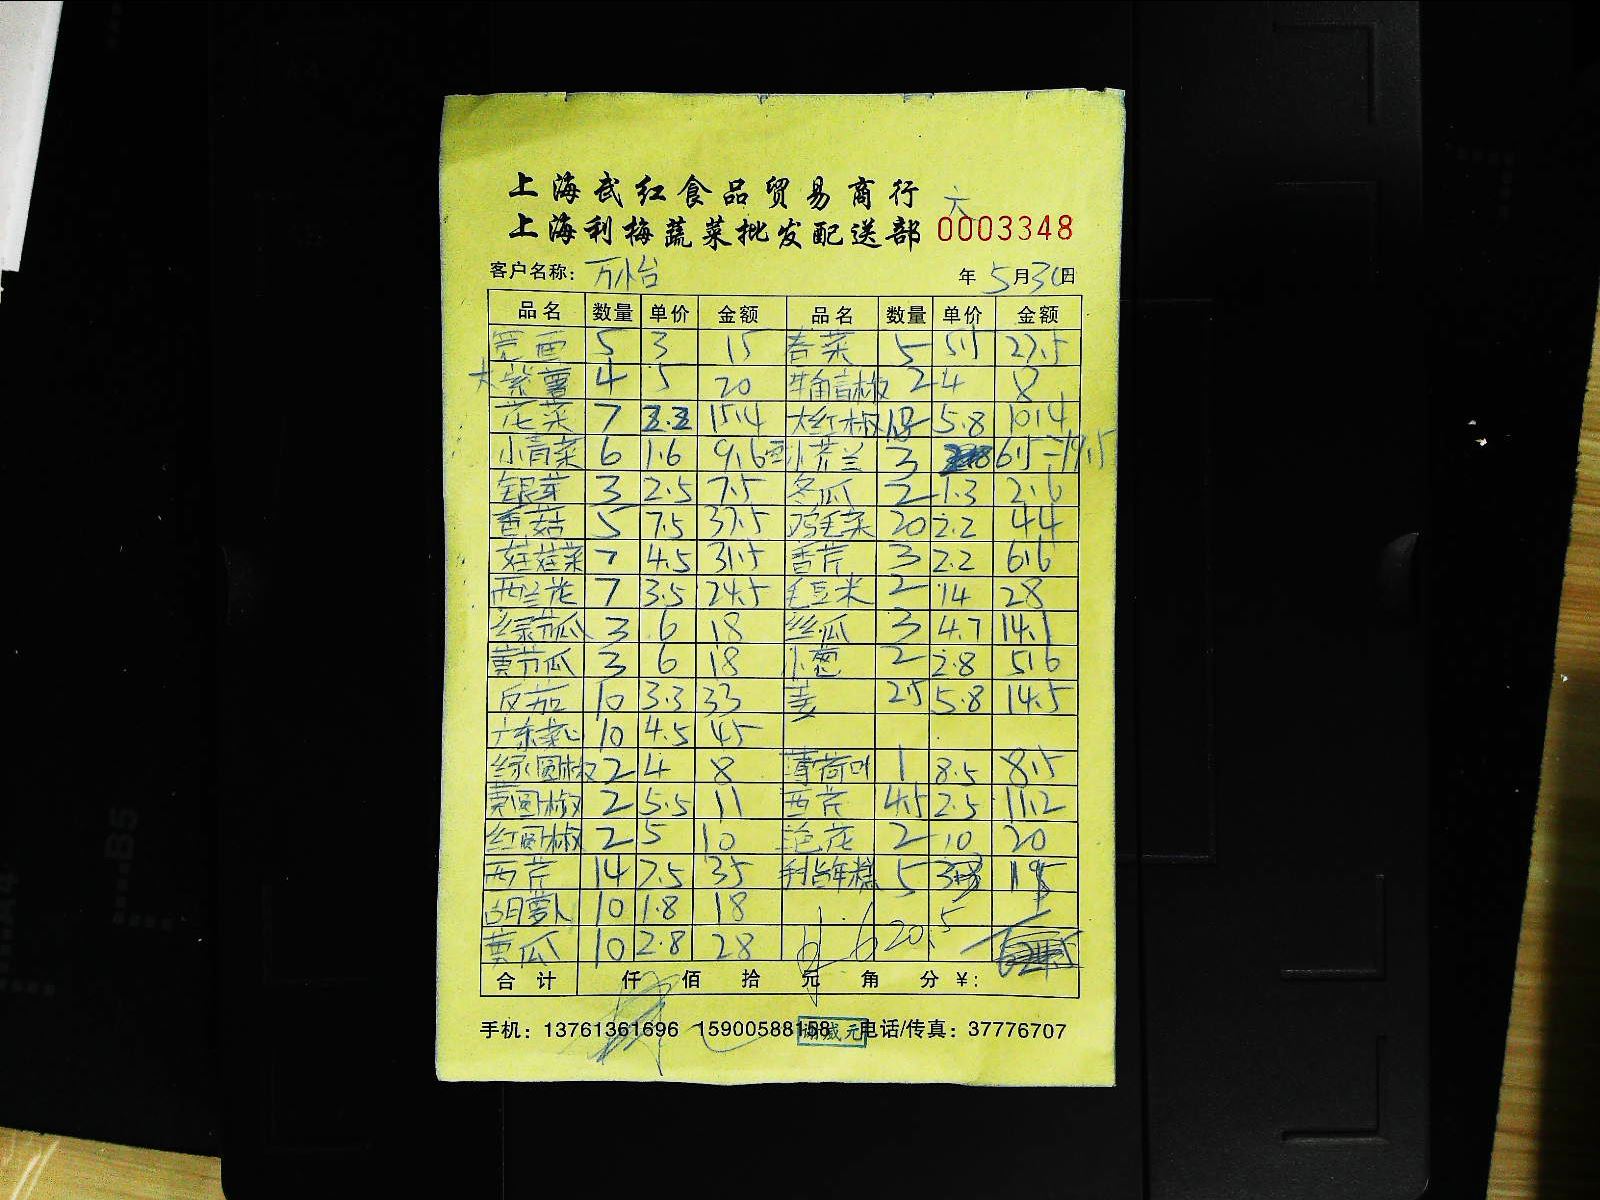 上海武红食品贸易商行
六
上海利梅蔬菜批发配送部 0003348
客户名称: 万怡 年 5月30日
品名 数量 单价 金额 品名 数量 单价 金额
5 3 15 春菜 5 5.5 27.5
大紫薯 4 5 20 牛角青椒 2 4 8
花菜 7 2.2 15.4 大红椒 5.8 10.4
小青菜 6 1.6 9.6 小芥兰 3 6.5=19.5
银芽 3 2.5 7.5 冬瓜 2 1.3 2.6
香菇 5 7.5 37.5 鸡毛菜 20 2.2 44
娃娃菜 7 4.5 31.5 香芹 3 2.2 6.6
西兰花 7 3.5 24.5 毛豆米 2 14 28
绿节瓜 3 6 18 丝瓜 3 4.7 14.1
黄节瓜 3 6 18 小葱 2 2.8 5.6
反茄 10 3.3 33 姜 2.5 5.8 14.5
广东菜心 10 4.5 45
绿圆椒 2 4 8 薄荷叶 1 8.5 8.5
黄圆椒 2 5.5 11 西芹 4.5 2.5 11.2
红圆椒 2 5 10 2 10 20
西芹 14 2.5 35 手指年糕 5
白萝卜 10 1.8 18
黄瓜 10 2.8 28 620.5
合计 仟 佰 拾 元 角 分 ¥:
手机: 13761361696 15900588158 电话/传真: 37776707